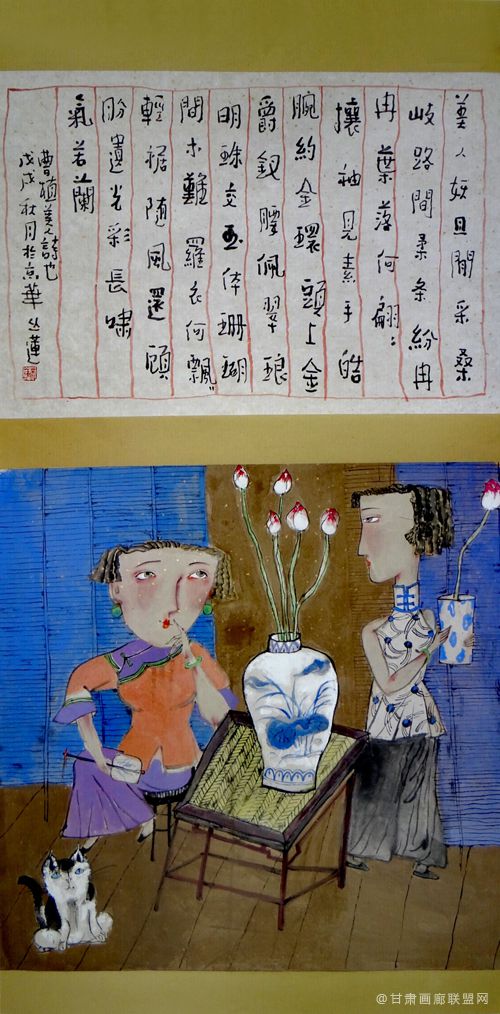 美人妖且閒采桑
岐路間柔条紛冉
冉葉落何翩〻
攘袖見素手皓
腕約金環頭上金
爵釵腰佩翠琅
明珠交玉体珊瑚
間木難羅衣何飄〻
輕裾随風還顧
盼遺光彩長嘯
氣若蘭
曹植美人詩也
戊戌秋月於京華 丛蓮
@甘肃画廊联盟网